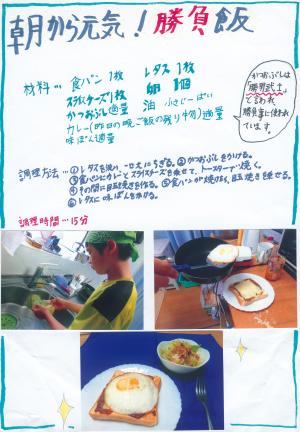 朝から元気！勝負飯
材料… 食パン 1枚　レタス 1枚
スライスチーズ 1枚　卵 1個
かつおぶし 適量　油 小さじ一ぱい
カレー(昨日の晩ご飯の残り物)適量
味ぽん 適量
かつおぶしは
「勝男武士」
と言われ
勝負事に使われ
ています。
調理方法…①レタスを洗い、一口大にちぎる。②かつおぶしをかける。
③食パンにカレーとスライスチーズを乗せて、トースターで焼く。
④その間に目玉焼きを作る。⑤食パンが焼けたら、目玉焼きを乗せる。
⑥レタスに味ぽんをかける。
調理時間…15分